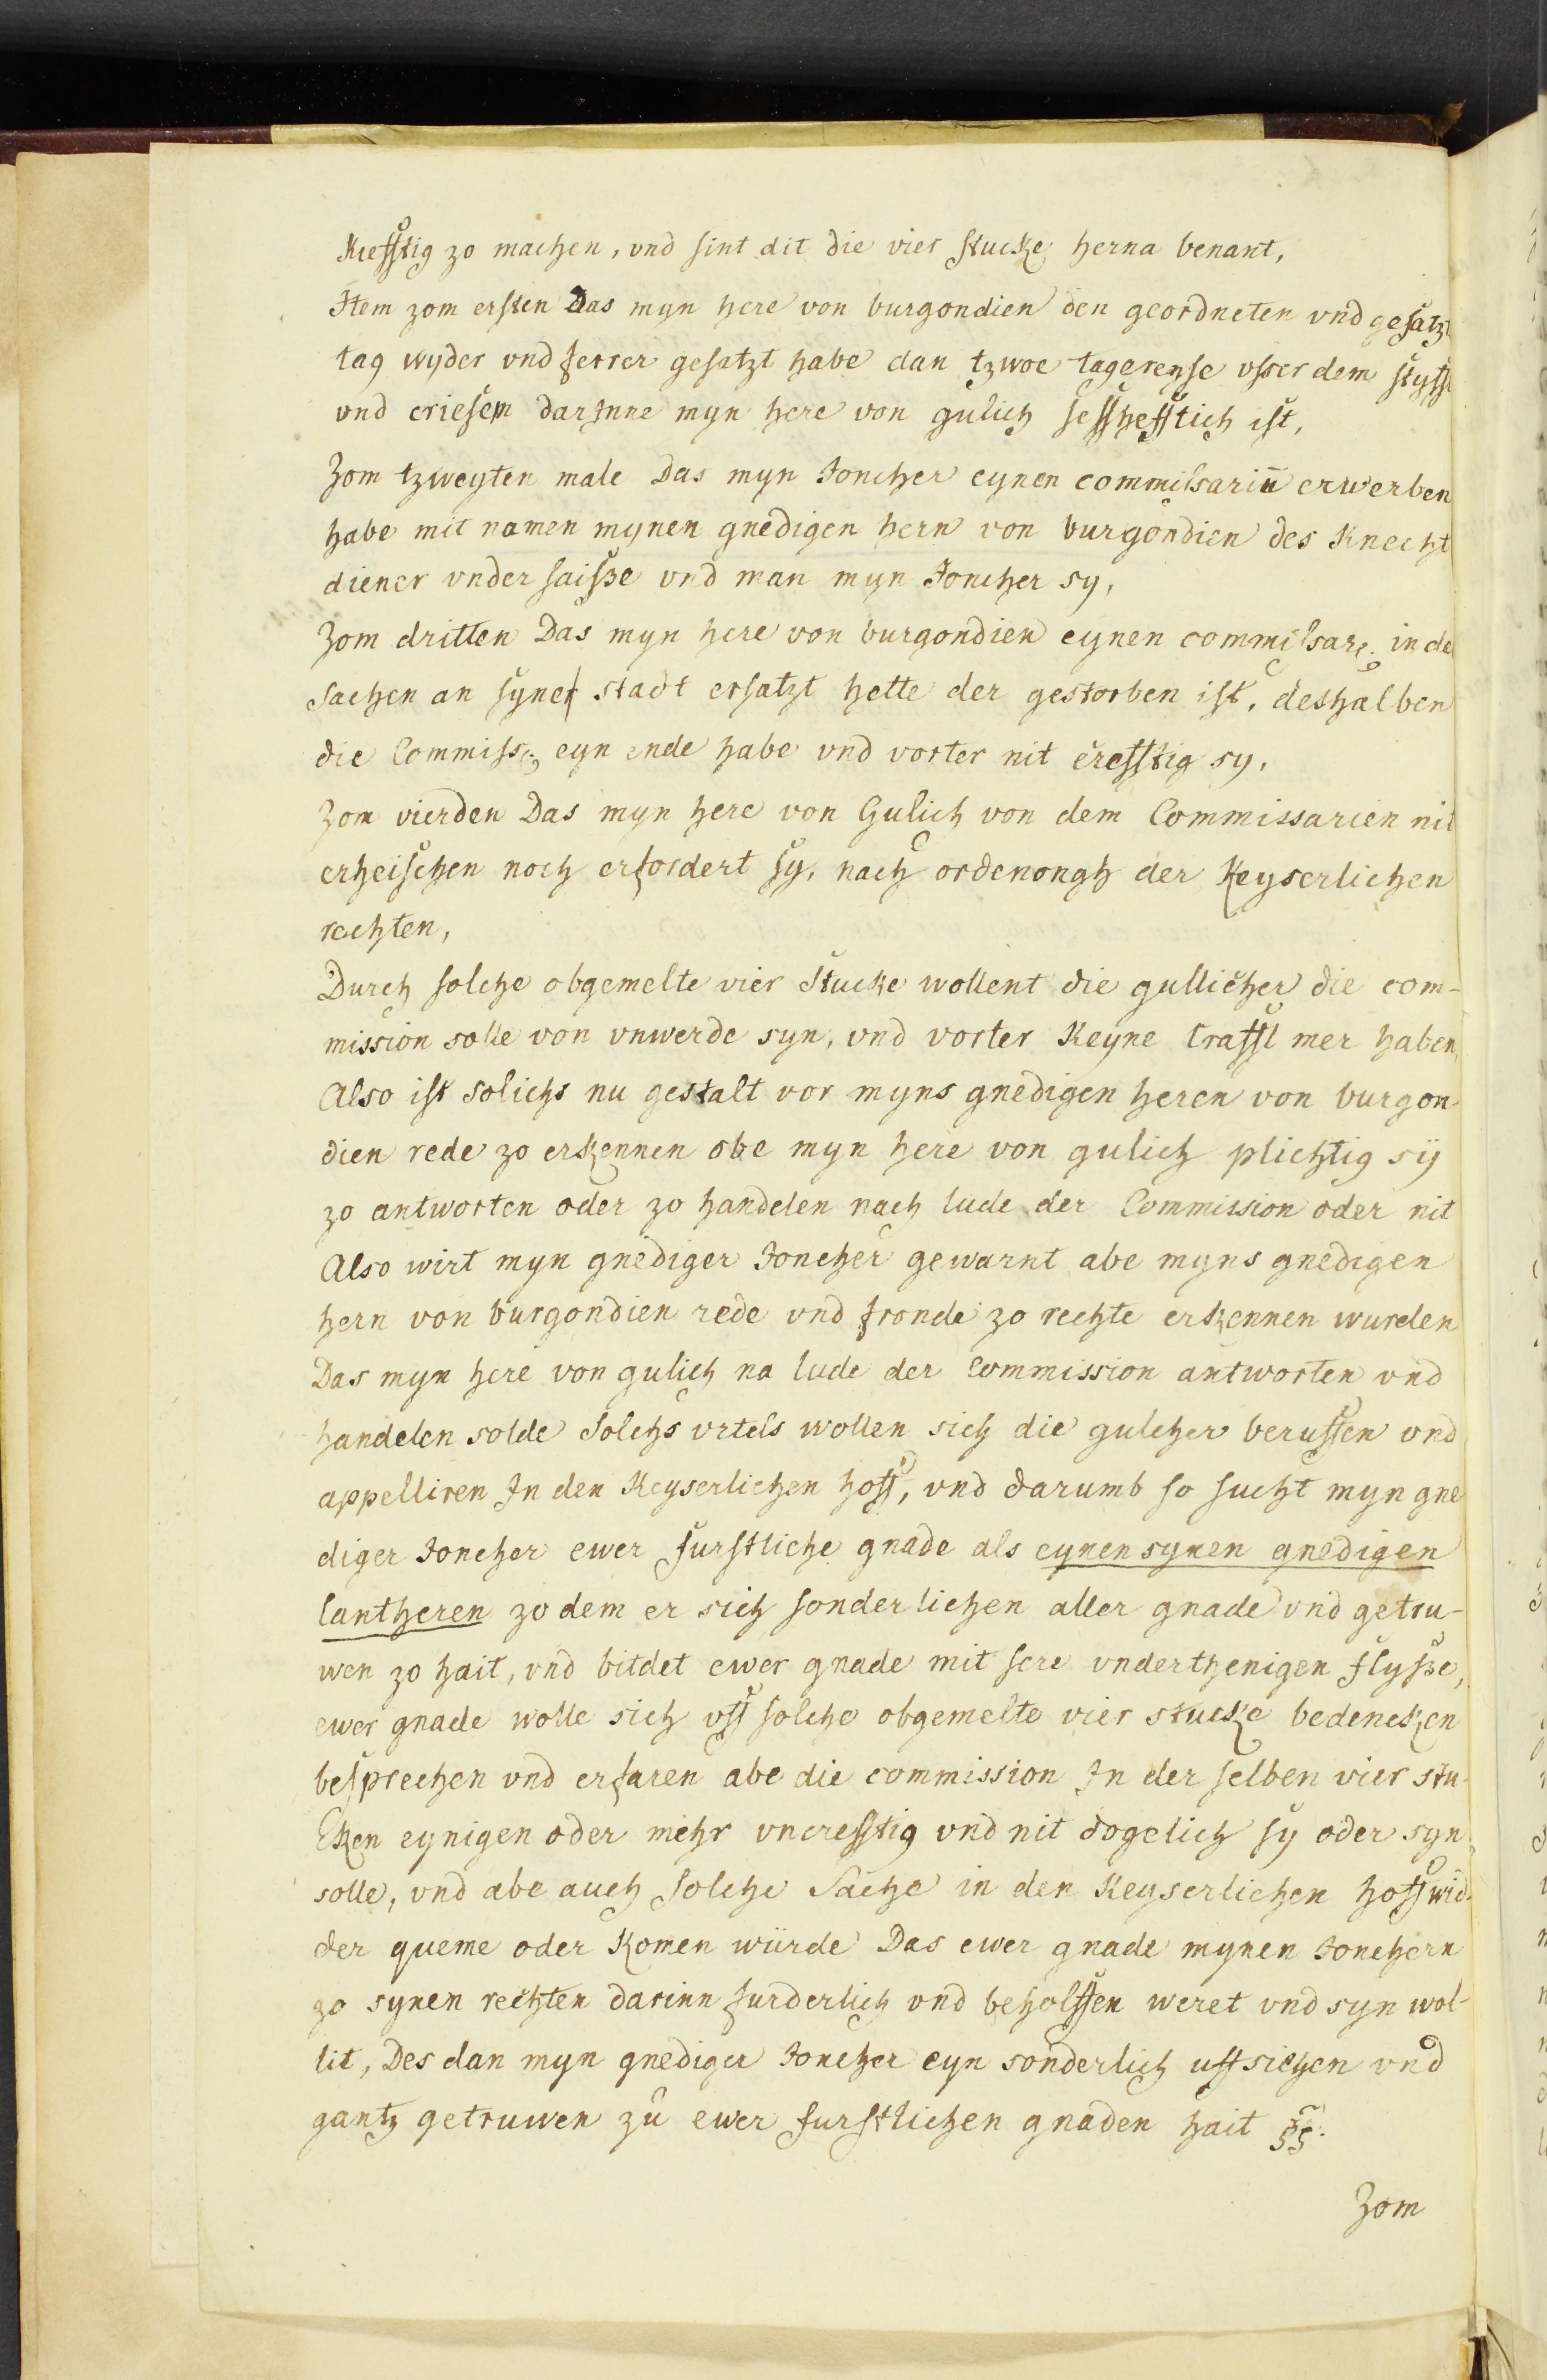 Krefftig zo machen, vnd sint dit die vier stucke herna benant,
Item zom ersten Das myn here von burgondien den geordneten vnd gesatzt
tag wyder vnd ferrer gesatzt habe dan tzwoe tagereyse vsser dem styfft
vnd criesem darInne myn here von gulich seshefftich ist,
Zom tzweyten male Das myn Joncher eynen commissariū erwerben
habe mit namen mynen gnedigen hern von burgondien des Knecht
diener vndersaisse vnd man myn Joncher sy,
Zom dritten Das myn here von burgondien eynen commissarē in de
Sachen an syner stadt ersatzt hette der gestorben ist, deshalben
die Commiss. eyn ende habe vnd vorter nit crefftig sy,
Zom vierden Das myn here von Gulich von dem Commissarien nit
erheischen noch erfordert sy, nach ordenongh der Keyserlichen
rechten,
Durch solche obgemelte vier Stucke wollent die gullicher die com-
mission solle von vnwerde syn, vnd vorter Keyne Crafft mer haben
Also ist solichs nu gestalt vor myns gnedigen heren von burgon
dien rede zo erkennen obe myn here von gulich plichtig sÿ
zo antworten oder zo handelen nach lude der Commission oder nit
Also wirt myn gnediger Joncher gewarnt abe myns gnedigen
hern von burgondien rede vnd fronde zo rechte erkennen wurden
Das myn here von gulich na lude der Commission antworten vnd
handelen solde Solchs vrtels wollen sich die gulcher beruffen vnd
appelliren In den Keyserlichen hoff, vnd darumb so sucht myn gne
diger Joncher ewer furstliche gnade als eynen synen gnedigen
lantheren zo dem er sich sonderlichen aller gnade vnd getru-
wen zo hait, vnd bitdet ewer gnade mit sere vnderthenigen flysse,
ewer gnade wolle sich vff solche obgemelte vier stucke bedencken
besprechen vnd erfaren abe die commission In der selben vier stu-
cken eynigen oder mehr vncrefftig vnd nit dogelich sy oder syn
solle, vnd abe auch solche Sache in den Keyserlichen hoff wid-
der queme oder Komen würde Das ewer gnade mynen Jonchern
zo synen rechten darinn furderlich vnd beholffen weret vnd syn wol-
lit, Des dan myn gnediger Joncher eyn sonderlich uffsichen vnd
gantz getruwen zu ewer furstlichen gnaden hait
Zom